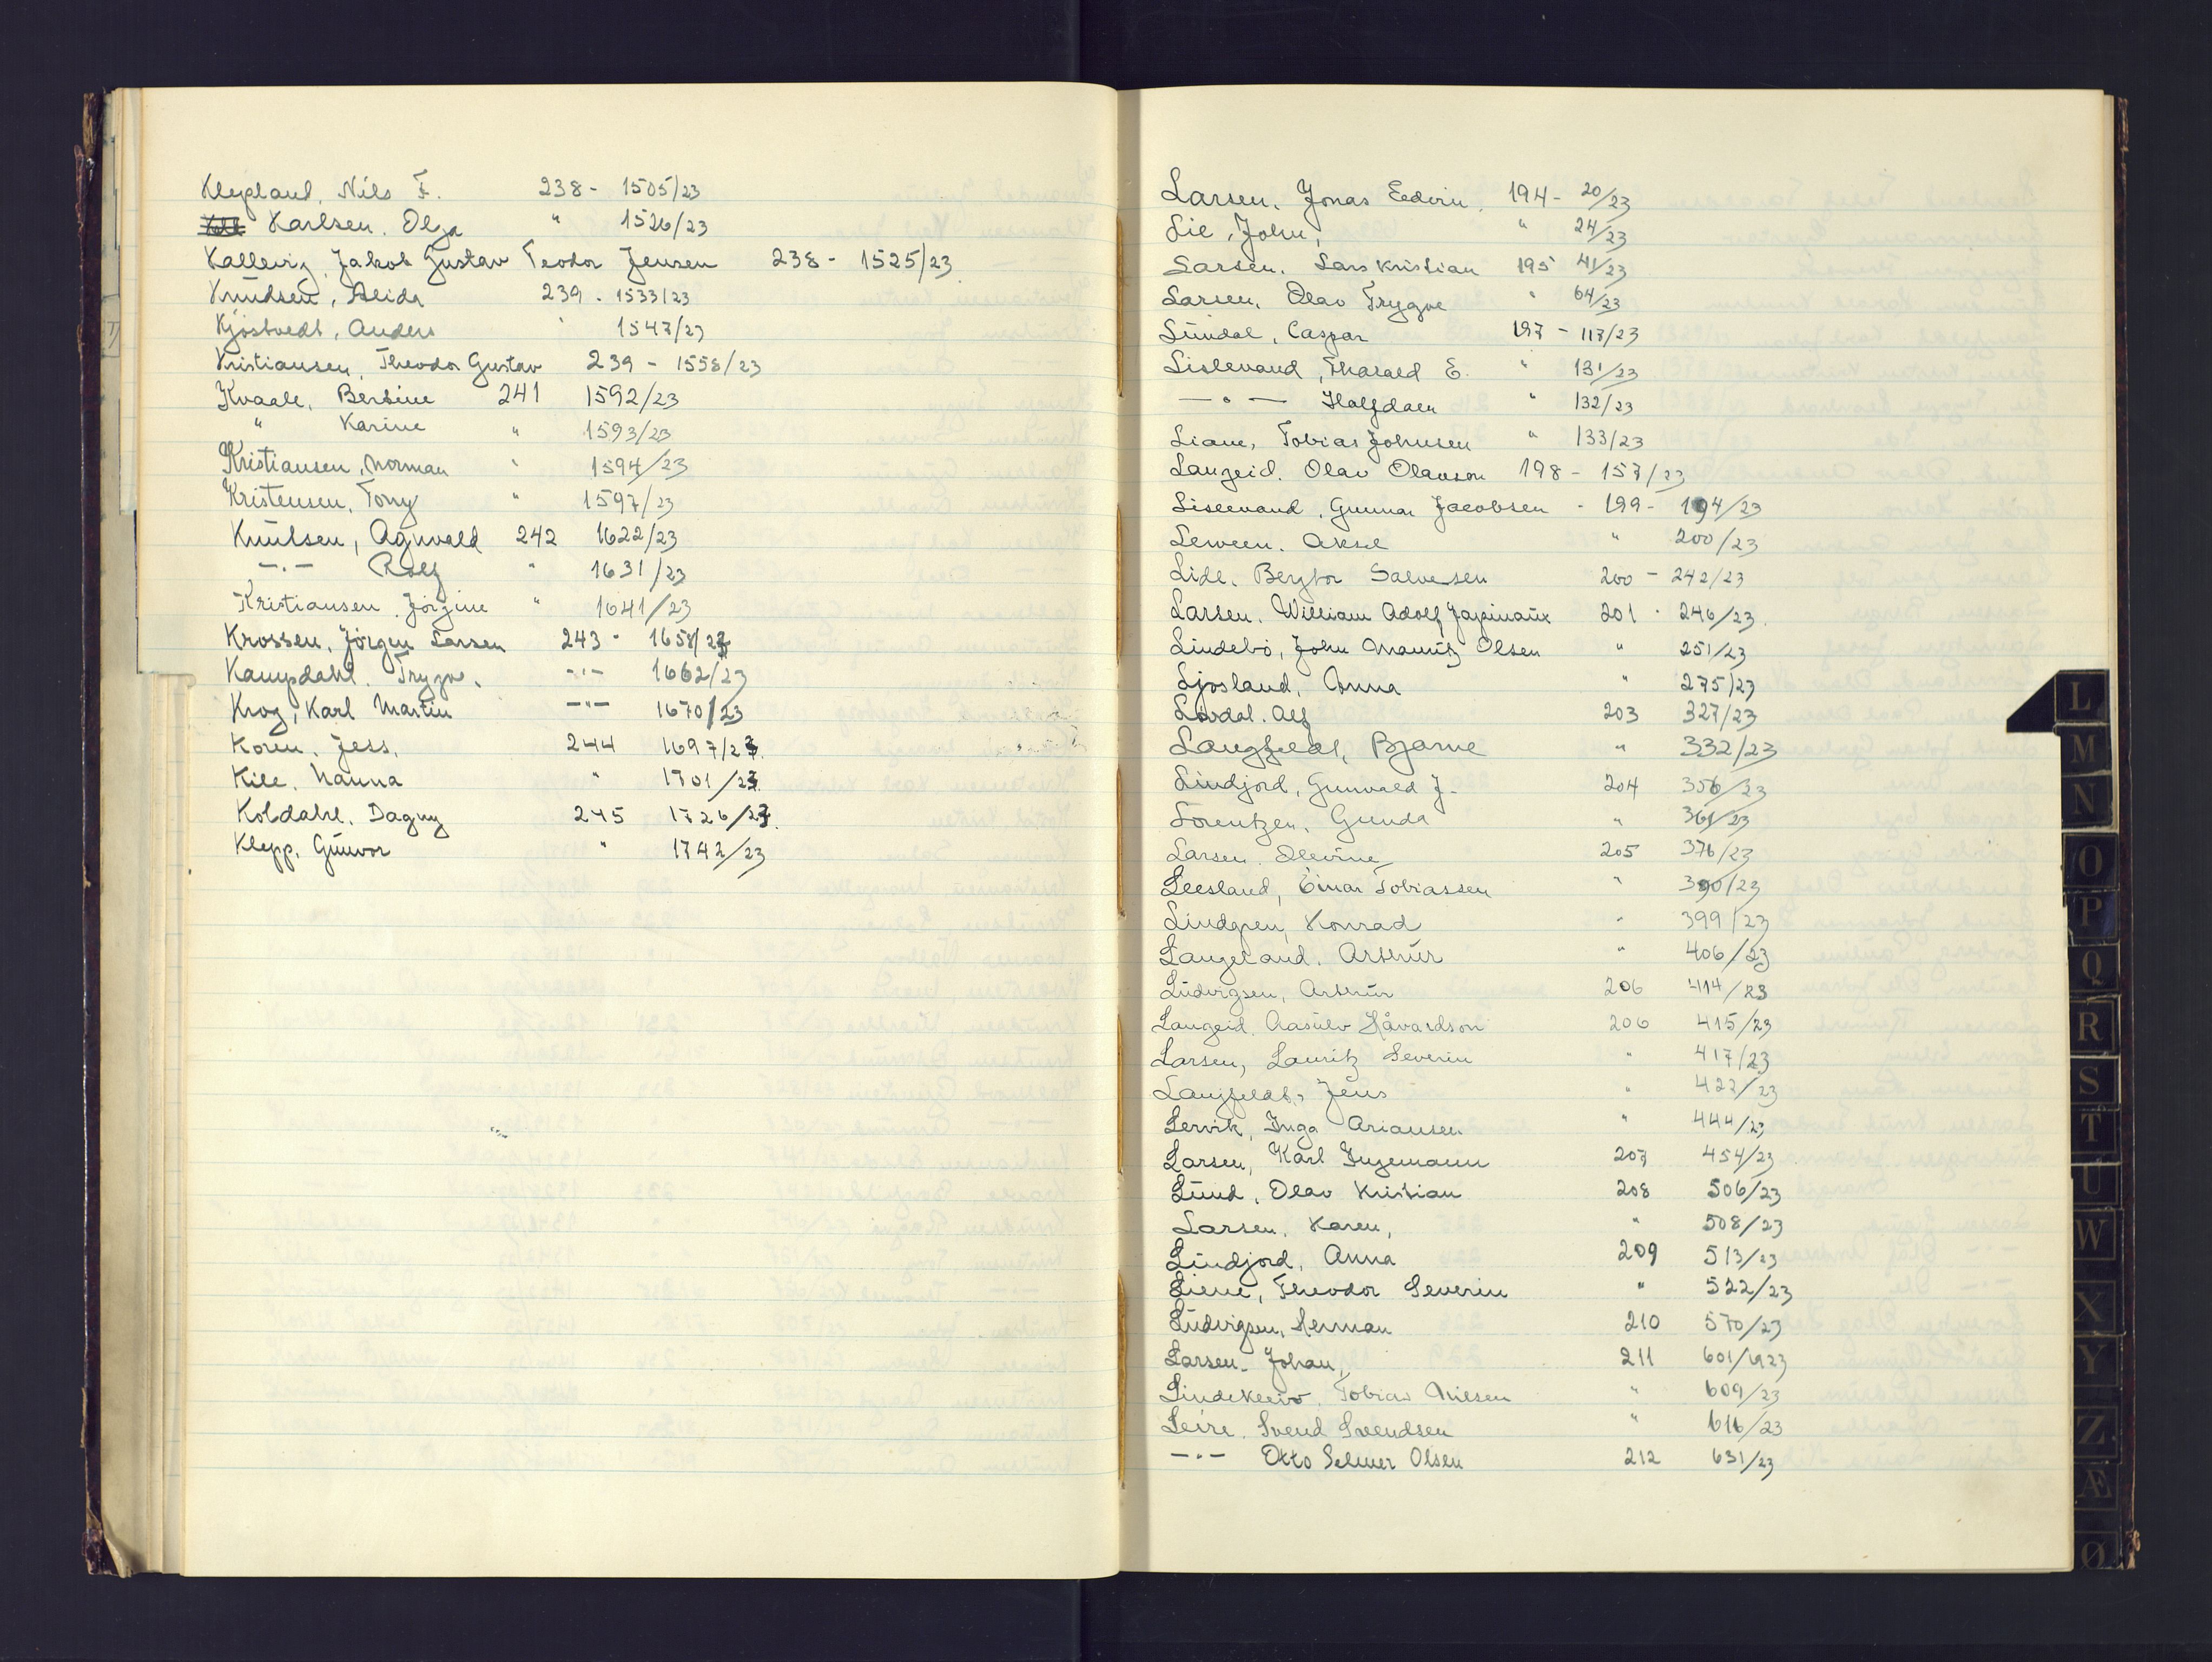 Klepland, Nils F. 238 - 1505/23
Karlsen, Olga " 1526/23
Kallevig, Jakob Gustav Teodor Jensen 238 - 1525/23
Knudsen, Alida 239 - 1533/23
Kjöstvedt, Anders " 1547/23
Kristiansen, Theodor Gustav 239 - 1558/23
Kvaale, Bertine 241 1592/23
" Karine " 1593/23
Kristiansen, Norman " 1594/23
Kristensen, Tony " 1597/23
Knutsen, Agnvald 242 1622/23
-"- Rolf " 1631/23
Kristiansen, Jörgine " 1641/23
Krossen, Jörgen Larsen 243 - 1658/23
Kampdahl, Trygve. -"- 1662/23
Krog, Karl Martin -"- 1670/23
Koren, Jess, 244 1697/23.
Kile, Nanna " 1701/23
Koldahl, Dagny 245 1726/23.
Klepp, Gunvor " 1742/23
Larsen, Jonas Edvin. 194 - 20/23
Lie, John, " 24/23
Larsen, Lars Kristian 195 41/23
Larsen, Olav Trygve " 64/23
Lundal, Caspar 197 - 117/23
Lislevand, Tharald E. " 131/23
-"- Halfdan " 132/23
Liane, Tobias Johnsen " 133/23
Langeid, Olav Olavson 198 - 157/23
Lislevand, Gunnar Jacobsen - 199 - 194/23
Lerveen, Aksel " 200/23
Lidl, Bergtor Salvesen 200 - 242/23
Larsen, William Adolf 201 - 246/23.
Lindebö, John Mauritz Olsen " 251/23
Ljosland, Anna " 275/23
Lördal, Alf 203 327/23
Langfeldt, Bjarne " 332/23
Lindjord, Gunvald J. 204 356/23
Lorentzen, Gunda " 361/23
Larsen, Olevine 205 376/23
Leesland, Einar Tobiassen " 390/23
Lindgren, Konrad " 399/23
Langeland, Arthur " 406/23
Ludvigsen, Arthur 206 414/23
Langeid, Aasulv Håvardson 206 415/23
Larsen, Lauritz Severin " 417/23
Langfeldt, Jens " 422/23
Lervik, Inga Ariansen " 444/23
Larsen, Karl Ingemann 207 454/23
Lund, Olav Kristian 208 506/23
Larsen, Karen, " 508/23
Lindjord, Anna 209 513/23
Liene, Theodor Severin " 522/23
Ludvigsen, Herman 210 570/23
Larsen, Johan, 211 601/1923
Lindekleiv, Tobias Nilsen " 609/23
Leire, Svend Svendsen " 616/23
-"- Otto Selmer Olsen 212 631/23
L
M
N
O
P
Q
R
S
T
U
W
X
Y
Z
Æ
Ø